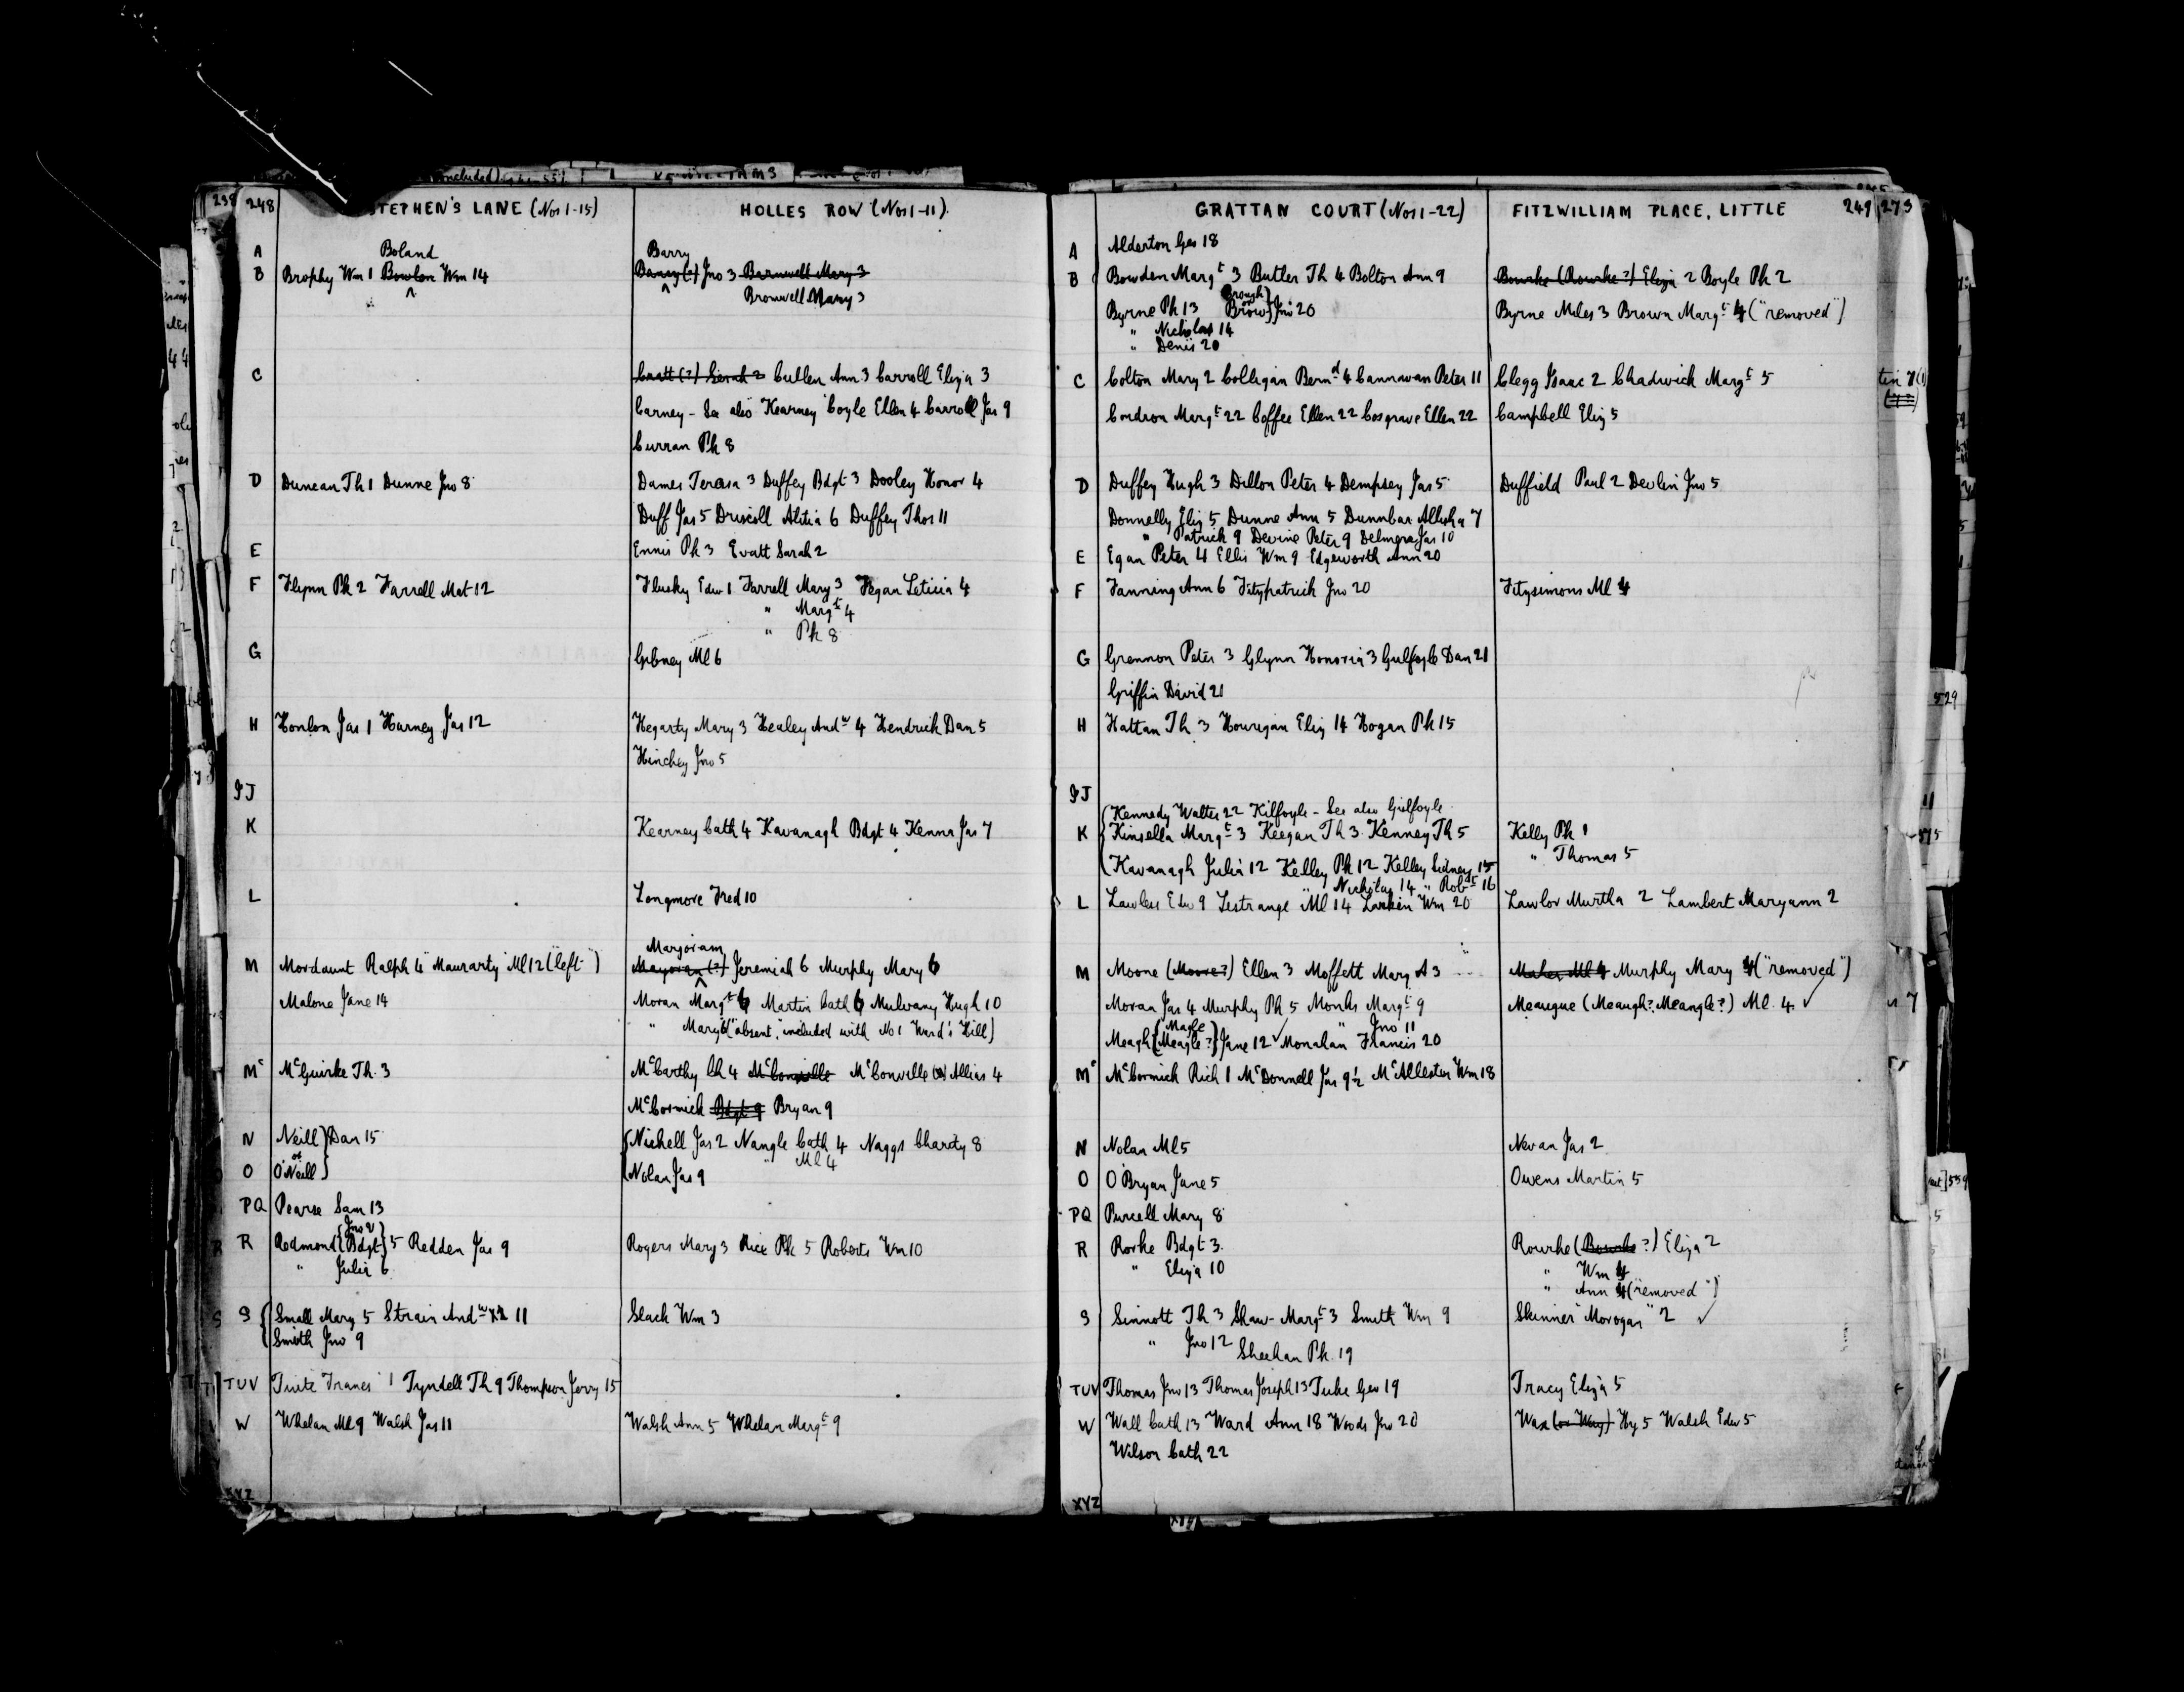 238 248 STEPHEN'S LANE (Nos 1-15)
A
B Boland
Brophy Wm 1 Bowlan Wm 14
C
D Duncan Th 1 Dunne Jno 8
E
F Flynn Pk 2 Farrell Mat 12
G
H Honlon Jas 1 Harney Jas 12
IJ
K
L
M Mordaunt Ralph 4 Maurarty Ml 12 ("left")
Malone Jane 14
Mc McGuirke Th. 3
N Neill } Dan 15
or
O O'Neill }
PQ Pearse Sam 13
{Jno 2}
R Redmond {Bdgt} 5 Redden Jas 9
" Julia 6
S Small Mary 5 Strain Andw 11
Smith Jno 9
TUV Tuite Franes 1 Tyndell Th 9 Thompson Jerry 15
W Whelan Ml 9 Walsh Jas 11
XYZ
HOLLES ROW (Nos 1-11).
Barry
Jno 3 Barnwell Mary 3
Bromwell Mary 3
Cratt (?) Sarah 2 Cullen Ann 3 Carroll Eliza 3
Carney - See also Kearney Coyle Ellen 4 Carroll Jas 9
Curran Pk 8
Dames Teresa 3 Duffey Bdgt 3 Dooley Honor 4
Duff Jas 5 Driscoll Alitia 6 Duffey Thos 11
Ennis Pk 3 Evatt Sarah 2
Flusky Edw 1 Farrell Mary 3 Fegan Leticia 4
" Margt 4
" Pk 8
Gibney Ml 6
Hegarty Mary 3 Healey Andw 4 Hendrick Dan 5
Hinchey Jno 5
Kearney Cath 4 Kavanagh Bdgt 4 Kenna Jas 7
Longmore Fred 10
Marjoram
Mayoram (?) Jeremiah 6 Murphy Mary 6
Moran Margt 6 Martin Cath 6 Mulvany Hugh 10
" Mary 6 ("absent", included with No 1 Ward's Hill)
McCarthy Ch 4 McConville McConvelle Allias 4
McCormick Bdgt 9 Bryan 9
Nichell Jas 2 Nangle Cath 4 Naggs Charity 8
" Ml 4
Nolan Jas 9
Rogers Mary 3 Rice Pk 5 Roberts Wm 10
Slack Wm 3
Walsh Ann 5 Whelan Margt 9
GRATTAN COURT (Nos 1-22)
A Alderton Geo 18
B Bowden Margt 3 Butler Th 4 Bolton Ann 9
Brough}
Byrne Pk 13 Brow} Jno 20
" Nicholas 14
" Denis 20
C Colton Mary 2 Colligan Bernd 4 Cannavan Peter 11
Condron Margt 22 Coffee Ellen 22 Cosgrave Ellen 22
D Duffey Hugh 3 Dillon Peter 4 Dempsey Jas 5
Donnelly Eliz 5 Dunne Ann 5 Dunnbar Allisha 7
" Patrick 9 Devine Peter 9 Delmera Jas 10
E Egan Peter 4 Ellis Wm 9 Edgeworth Ann 20
F Fanning Ann 6 Fitzpatrick Jno 20
G Grennon Peter 3 Glynn Honoria 3 Gulfoyle Dan 21
Griffin David 21
H Hattan Th 3 Hourigan Eliz 14 Hogan Pk 15
IJ
Kennedy Walter 22 Kilfoyle - See also Gulfoyle
K Kinsella Margt 3 Keegan Th 3 Kenney Th 5
Kavanagh Julia 12 Kelley Pk 12 Kelley Sidney 15
" Nicholas 14 " Robt 16
L Lawless Edw 9 Lestrange Ml 14 Larkin Wm 20
M Moone (Moore?) Ellen 3 Moffett Mary A 3
Moran Jas 4 Murphy Pk 5 Monks Margt 9
{Magle " Jno 11
Meagh {Meagle?} Jane 12 ✓ Monahan Francis 20
Mc McCormick Rich 1 McDonnell Jas 9½ McAllester Wm 18
N Nolan Ml 5
O O'Bryan Jane 5
PQ Purcell Mary 8
R Rorke Bdgt 3.
" Eliza 10
S Sinnott Th 3 Shaw Margt 3 Smith Wm 9
" Jno 12 Sheehan Pk. 19
TUV Thomas Jno 13 Thomas Joseph 13 Tuke Geo 19
W Wall Cath 13 Ward Ann 18 Woods Jno 20
Wilson Cath 22
XYZ
FITZWILLIAM PLACE, LITTLE 249 273
Bourke (Rourke?) Eliza 2 Boyle Pk 2
Byrne Miles 3 Brown Margt 4 ("removed")
Clegg Isaac 2 Chadwick Margt 5
Campbell Eliz 5
Duffield Paul 2 Devlin Jno 5
Fitzsimons Ml 4
Kelly Pk 1
" Thomas 5
Lawlor Murtha 2 Lambert Maryann 2
Maher Ml 4 Murphy Mary 4 ("removed")
Meaugue (Meaugh? Meangle?) Ml. 4 ✓
Nevan Jas 2
Owens Martin 5
Rourke (Bourke?) Eliza 2
" Wm 4
" Ann 4 ("removed")
Skinner "Morogan" 2 ✓
Tracy Eliza 5
Wax (or Way) Hy 5 Walsh Edw 5